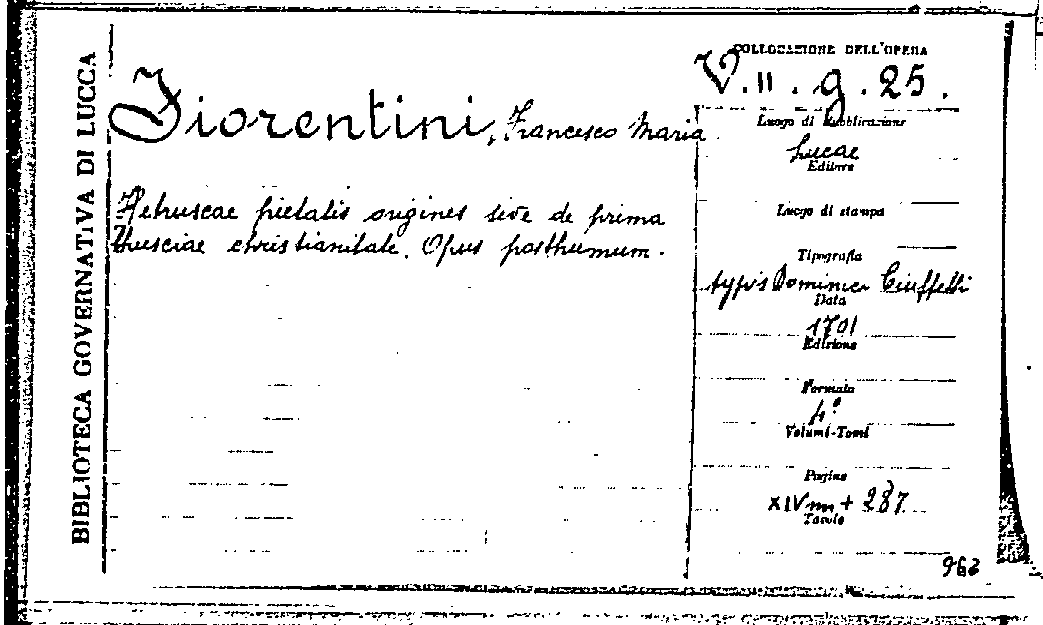 BIBLIOTECA GOVERNATIVA DI LUCCA
Fiorentini, Francesco Maria
Hetruscae pietatis origines sive de prima
thusciae christianitate. Opus posthumum.
COLLOCAZIONE DELL'OPERA
V. II. g. 25.
Luogo di pubblicazione
Lucae
Editore
Luogo di stampa
Tipografia
typis Dominici Ciuffetti
Data
1701
Edizione
Formato
4º
Volumi-Tomi
Pagine
XIV + 287
Tavole
963